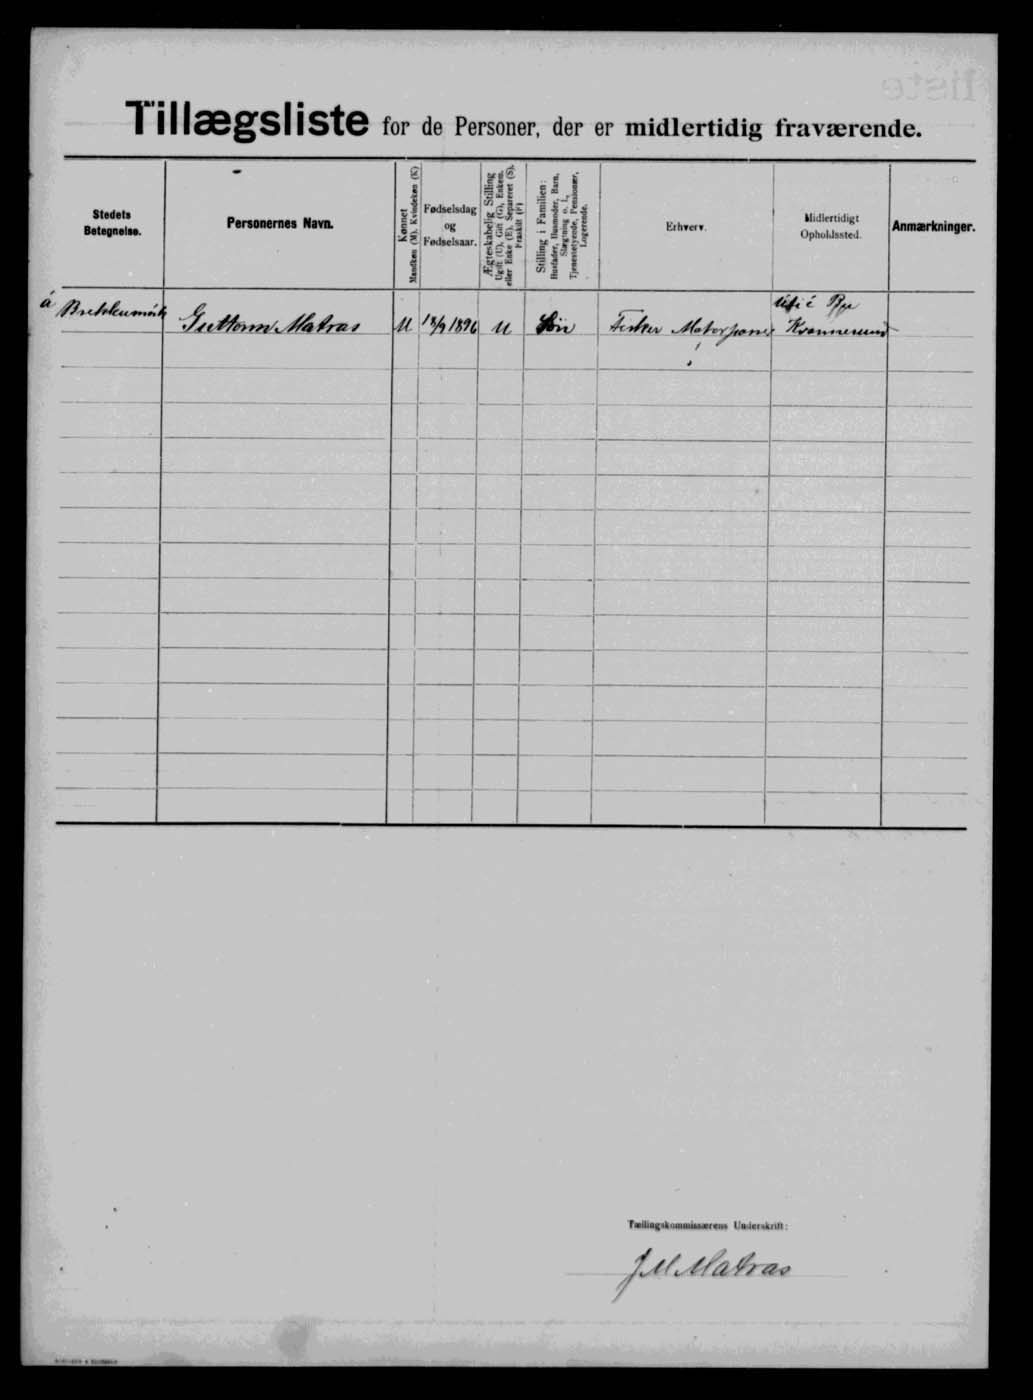 Tillægsliste for de Personer, der er midlertidig fraværende.
Stedets
Betegnelse.
Personernes Navn.
Kønnet
Mandkøn (M). Kvindekøn (K)
Fødselsdag
og
Fødselsaar.
Ægteskabelig Stilling
Ugift (U), Gift (G), Enkem.
eller Enke (E), Separeret (S),
Fraskilt (F)
Stilling i Familien:
Husfader, Husmoder, Barn,
Slægtning o. l.,
Tjenestetyende, Pensionær,
Logerende.
Erhverv.
Midlertidigt
Opholdssted.
Anmærkninger.
á
Guttorm Matras M 1896 U Søn Fisker
Tællingskommissærens Underskrift:
J M Matras